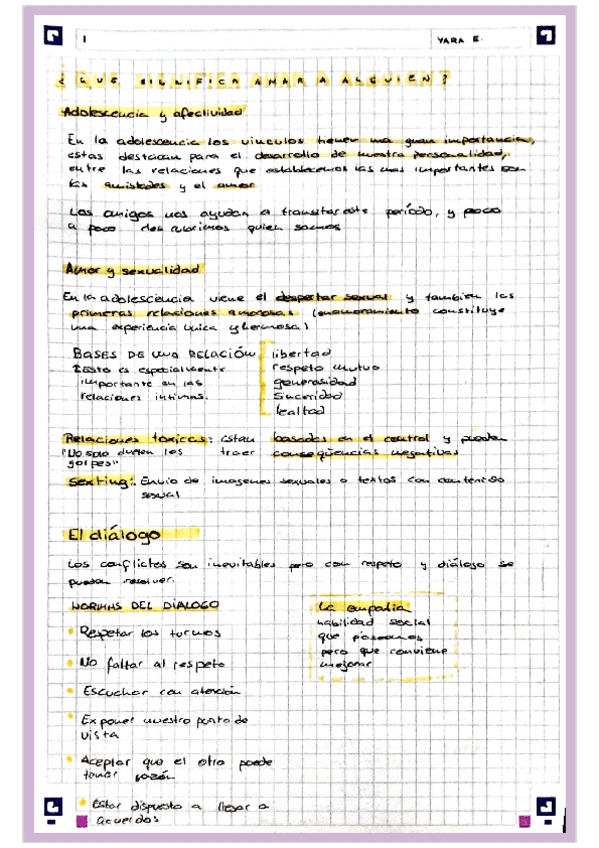 1
YARA E.
¿QUE SIGNIFICA AMAR A ALGUIEN?
Adolescencia y afectividad
En la adolescencia los vinculos tienen una gran importancia,
estas destacan para el desarrollo de nuestra personalidad,
entre las relaciones que establecemos las mas importantes son
las amistades y el amor
Los amigos nos ayudan a transitar este período, y poco
a poco descubrimos quien somos
Amor y sexualidad
En la adolescencia viene el despertar sexual y tambien las
primeras relaciones amorosas (enamoramiento constituye
una experiencia unica y hermosa)
BASES DE UNA RELACIÓN
Esto es especialmente
importante en las
relaciones intimas.
libertad
respeto mutuo
generosidad
Sinceridad
lealtad
Relaciones toxicas: estan basadas en el control y pueden
"No solo duelen los traer consequencias negativas
golpes"
Sexting: Envio de imagenes sexuales o textos con contenido
sexual
El diálogo
Los conflictes son inevitables pero con respeto y diálogo se
pueden resolver.
NORMAS DEL DIALOGO
Respetar los turnos
No faltar al respeto
Escuchar con atención
Exponer nuestro punto de
vista
Aceptar que el otro puede
tener razón
Estar dispuesto a llegar a
acuerdos
La empatia
habilidad social
que poseemos
pero que conviene
mejorar